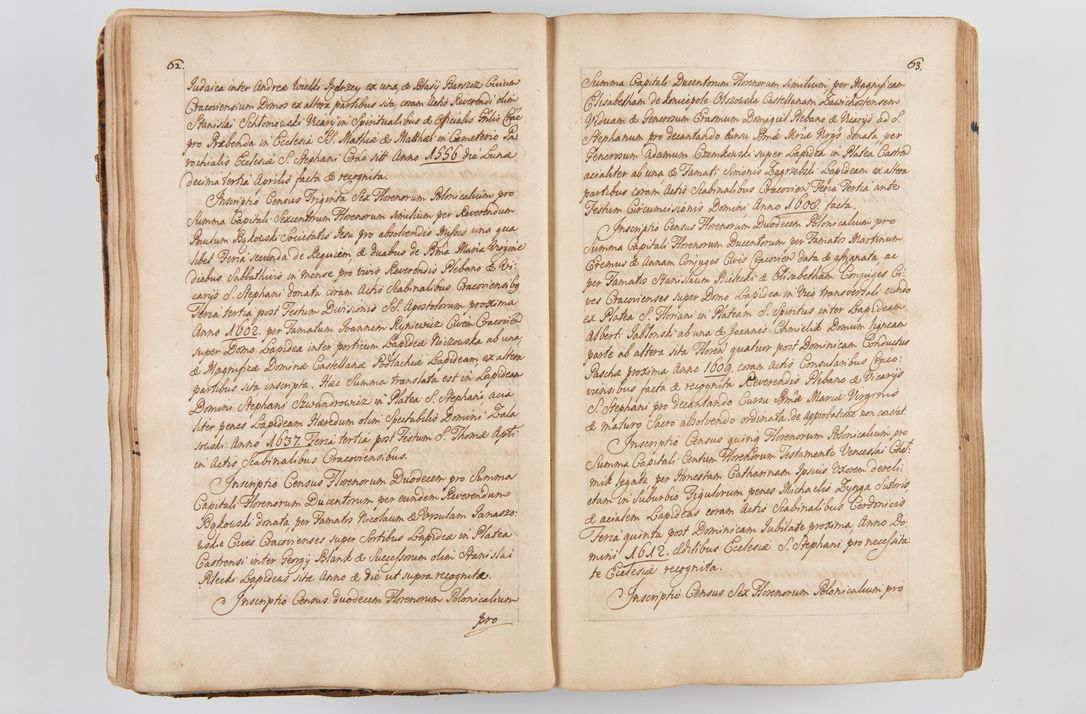 62.
Iudaica inter Andreæ Jędrzey ex una, & Blasij Civium
Cracoviensium Domos ex altera partibus sita, coram Actis Reverendi olim
Stanislai Vicarij in Spiritualibus & Officialis Gnlis Crac
pro Præbenda in Ecclesia SS. Mathiæ & Matthæi in Cæmeterio Pa
rochialis Ecclesiæ S. Stephani Crac sitt Anno 1556 die Lunæ
decima tertia Aprilis facta & recognita.
Inscriptio Census Triginta Sex Florenorum Polonicalium pro
Summa Capitali Sexcentorum Florenorum similium per Reverendum
Paulum Bąkowski Societatis Iesu pro absolvendis Missis una qua
libet Feria secunda de Requiem & duabus de Bma Maria Virgine
diebus Sabbathivis in mense pro vivis Reverendis Plebano & Vi:
carijs S. Stephani donata coram Actis Scabinalibus Cracoviensibg
Feria tertia post Festum Divisionis SS. Apostolorum proxima
Anno 1602. per Famatum Joannem Kyniewicz Civem Cracovien
super Domo Lapidea inter porticum Lapideæ ab una,
& Magnificæ Dominæ Castellanæ Podlachiæ Lapideam ex altera
partibus sita inscripta. Hæc Summa translata est in Lapideam
Domini Stephani Szwandrowicz in Platea S. Stephani, acia
liter penes Lapideam Hæredum olim Spectabilis Domini Zala
Anno 1637. Feria tertia post Festum S. Thomæ Apti
in Actis Scabinalibus Cracoviensibus.
Inscriptio Census Florenorum Duodecem pro Summa
Capitali Florenorum Ducentorum per eundem Reverendum
Bąkowski donata, per Famatos Nicolaum & Ursulam Janaszo:
Cives Cracovienses super Sortibus Lapideæ in Platea
Castrensi inter Georgij Blank & Successorum olim Stanislai
Pilecki Lapideas sitæ Anno & die ut supra recognita.
Inscriptio Census duodecem Florenorum Polonicalium
pro
63.
Summa Capitali Ducentorum Florenorum similium per Magnificam
Elisabetham de Koniecpole Olszowska Castellanam Zawichostensem
Viduam & Generosum Erasmum Plebano & Vicarijs ad S.
Stephanum pro decantando Cursu Bmæ Mariæ Vergis donata, per
Generosum Adamum Czemkowski super Lapidea in Platea Castren
acialiter ab una & Famati Simonis Zagrzebski Lapideam ex altera
partibus coram Actis Scabinalibus Cracovien Feria Tertia ante
Festum Circumcisionis Domini Anno 1608. facta.
Inscriptio Census Florenorum Duodecem Polonicalium pro
Summa Capitali Florenorum Ducentorum per Famatos Martinum
Cremus & Annam Conjuges Cives Cracovien data & assignata ac
per Famatos Stanislaum & Elisabetham Conjuges Ci:
ves Cracovienses super Domo Lapidea in Vico transversali eundo
ex Platea S. Floriani in Plateam S. Spiritus inter Lapideam
Alberti Jablonski ab una & Joannis Chmielik Domum ligneam
parte ab altera sita Floren quatuor post Dominicam Conductus
Paschæ proxima Anno 1609. coram Actis Consularibus Craco:
viensibus facta & recognita Reverendis Plebano & Vicarijs
S. Stephani pro decantando Cursu Bmæ Mariæ Virginis
& maturo Sacro absolvendo ordinata. de approbatone non constat
Inscriptio Census quinq Florenorum Polonicalium pro
Summa Capitali Centum Florenorum Testamento Venceslai Chot:
mik legata per Honestam Catharinam Ipsius Uxorem dereli:
ctam in Suburbio Figulorum penes Michaelis Zynga Sutoris
& acialem Lapideas coram Actis Scabinalibus Cerdonicis
Feria quinta post Dominicam Iubilate proxima Anno Do
mini 1612. Ædilibus Ecclesiæ S. Stephani pro necessita
te Ecclesiæ recognita.
Inscriptio Census Sex Florenorum Polonicalium pro